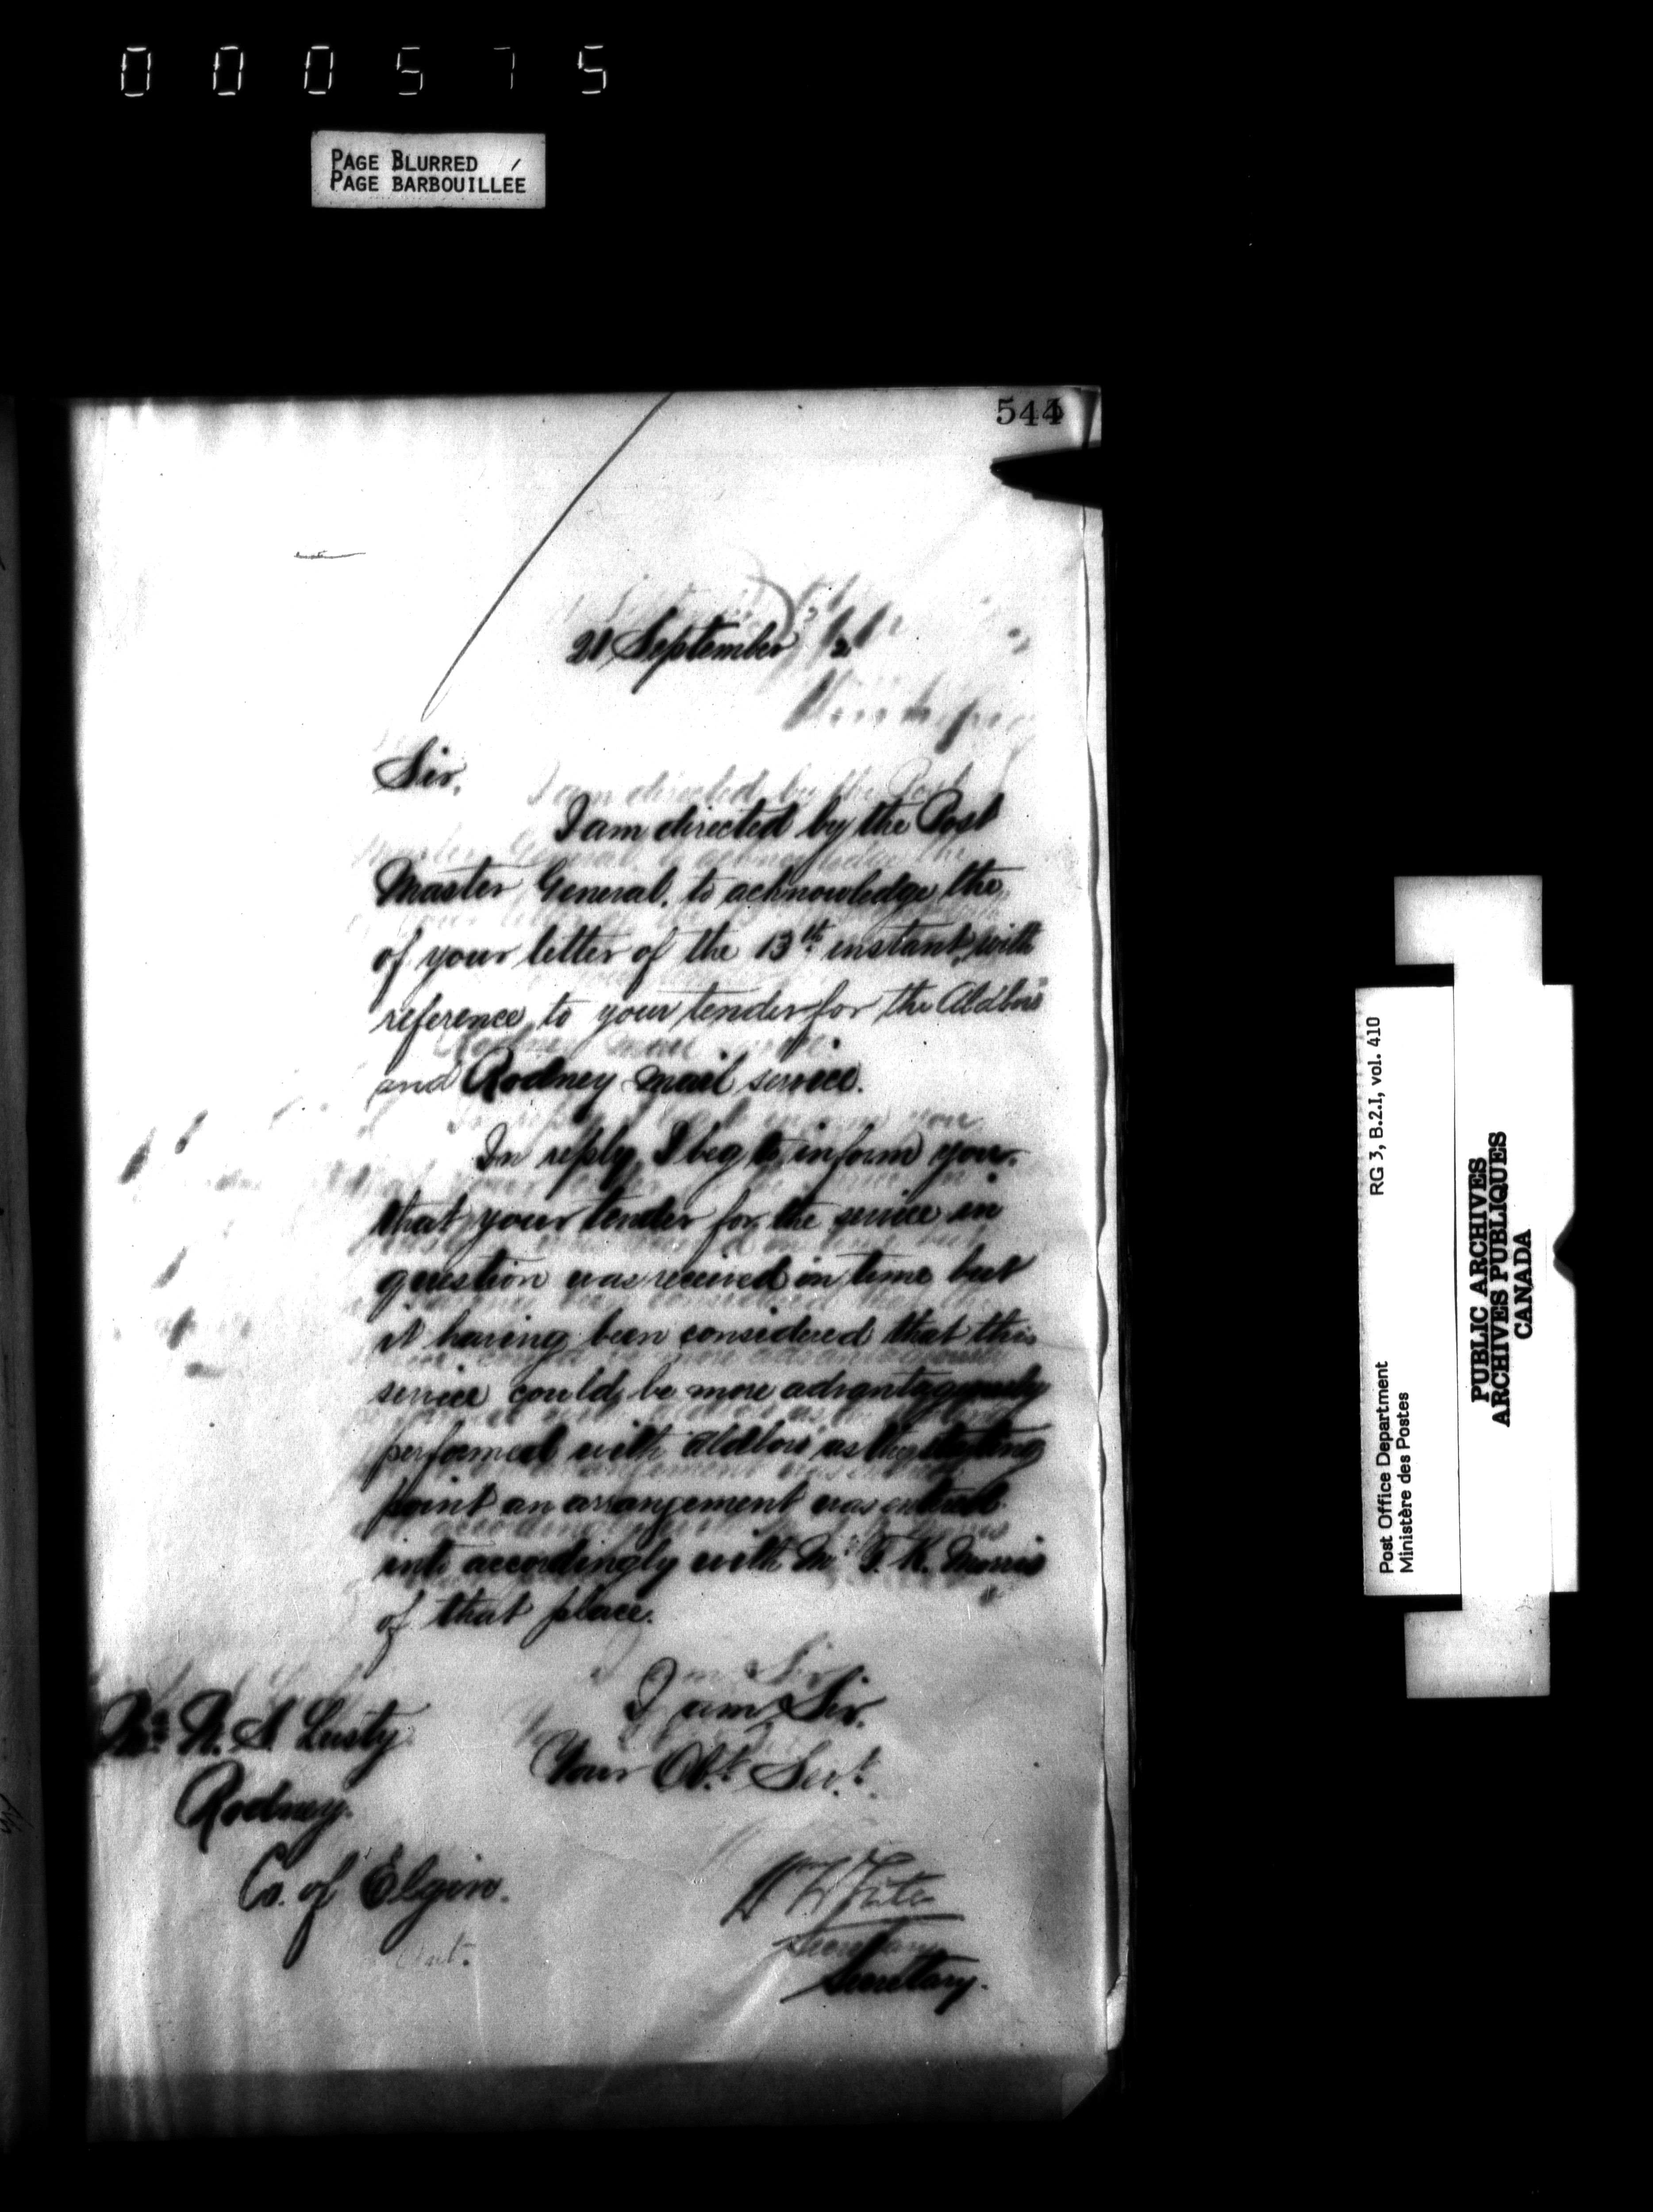 000575
PAGE BLURRED /
PAGE BARBOUILLÉE
544
21 September
Sir,
I am directed by the Post
Master General, to acknowledge the
of your letter of the 13th instant, with
reference to your tender for the Aldboro
and Rodney mail service.
In reply I beg to inform you
that your tender for the service in
question was received in time but
it having been considered that this
service could be more advantageously
performed with Aldboro as the starting
point an arrangement was entered
into accordingly with Mr. F. K. Morris
of that place.
I am, Sir,
Your Obt. Sevt.
Mr. N. S. Lusty
Rodney.
Co. of Elgin.
Ont.
Wm White
Secretary
Secretary.
RG 3, B.2.I, vol. 410
Post Office Department
Ministère des Postes
PUBLIC ARCHIVES
ARCHIVES PUBLIQUES
CANADA